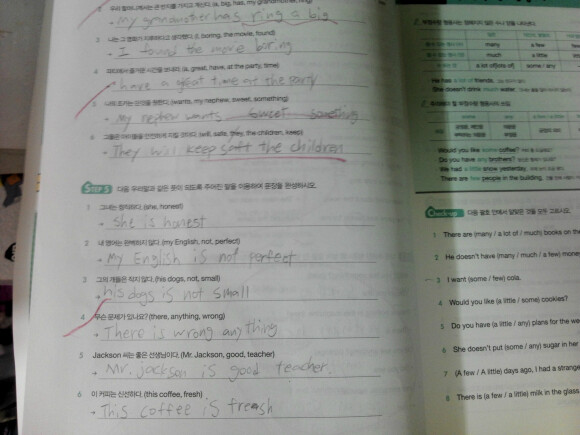 우리 할머니께서는 큰 반지를 가지고 계신다. (a, big, has, my grandmother, ring)
→ My grandmother has ring a big
3 나는 그 영화가 지루하다고 생각했다. (I, boring, the movie, found)
→ I found the movie boring
4 파티에서 즐거운 시간을 보내라. (a, great, have, at the party, time)
→ have a great time at the party
5 나의 조카는 단것을 원한다. (wants, my nephew, sweet, something)
→ My nephew wants sweet something
6 그들은 아이들을 안전하게 지킬 것이다. (will, safe, they, the children, keep)
→ They will keep saft the children
STEP 5 다음 우리말과 같은 뜻이 되도록 주어진 말을 이용하여 문장을 완성하시오.
1 그녀는 정직하다. (she, honest)
→ she is honest
2 내 영어는 완벽하지 않다. (my English, not, perfect)
→ My English is not perfect
3 그의 개들은 작지 않다. (his dogs, not, small)
→ his dogs is not small
4 무슨 문제가 있나요? (there, anything, wrong)
→ There is wrong anything
5 Jackson 씨는 좋은 선생님이다. (Mr. Jackson, good, teacher)
→ Mr. jackson is good teacher.
6 이 커피는 신선하다. (this coffee, fresh)
→ This coffee is freash
many a few
much a little
a lot of(lots of) some / any
He has a lot of friends.
She doesn't drink much water.
Would you like some coffee?
Do you have any brothers?
We had a little snow yesterday.
There are few people in the building.
Checkup 다음 괄호 안에서 알맞은 것을 모두 고르시오.
1 There are (many / a lot of / much) books on the
2 He doesn't have (many / much / a few) money
3 I want (some / few) cola.
4 Would you like (a little / some) cookies?
5 Do you have (a little / any) plans for the we
6 She doesn't put (some / any) sugar in her
7 (A few / A little) days ago, I had a strange
8 There is (a few / a little) milk in the glass.